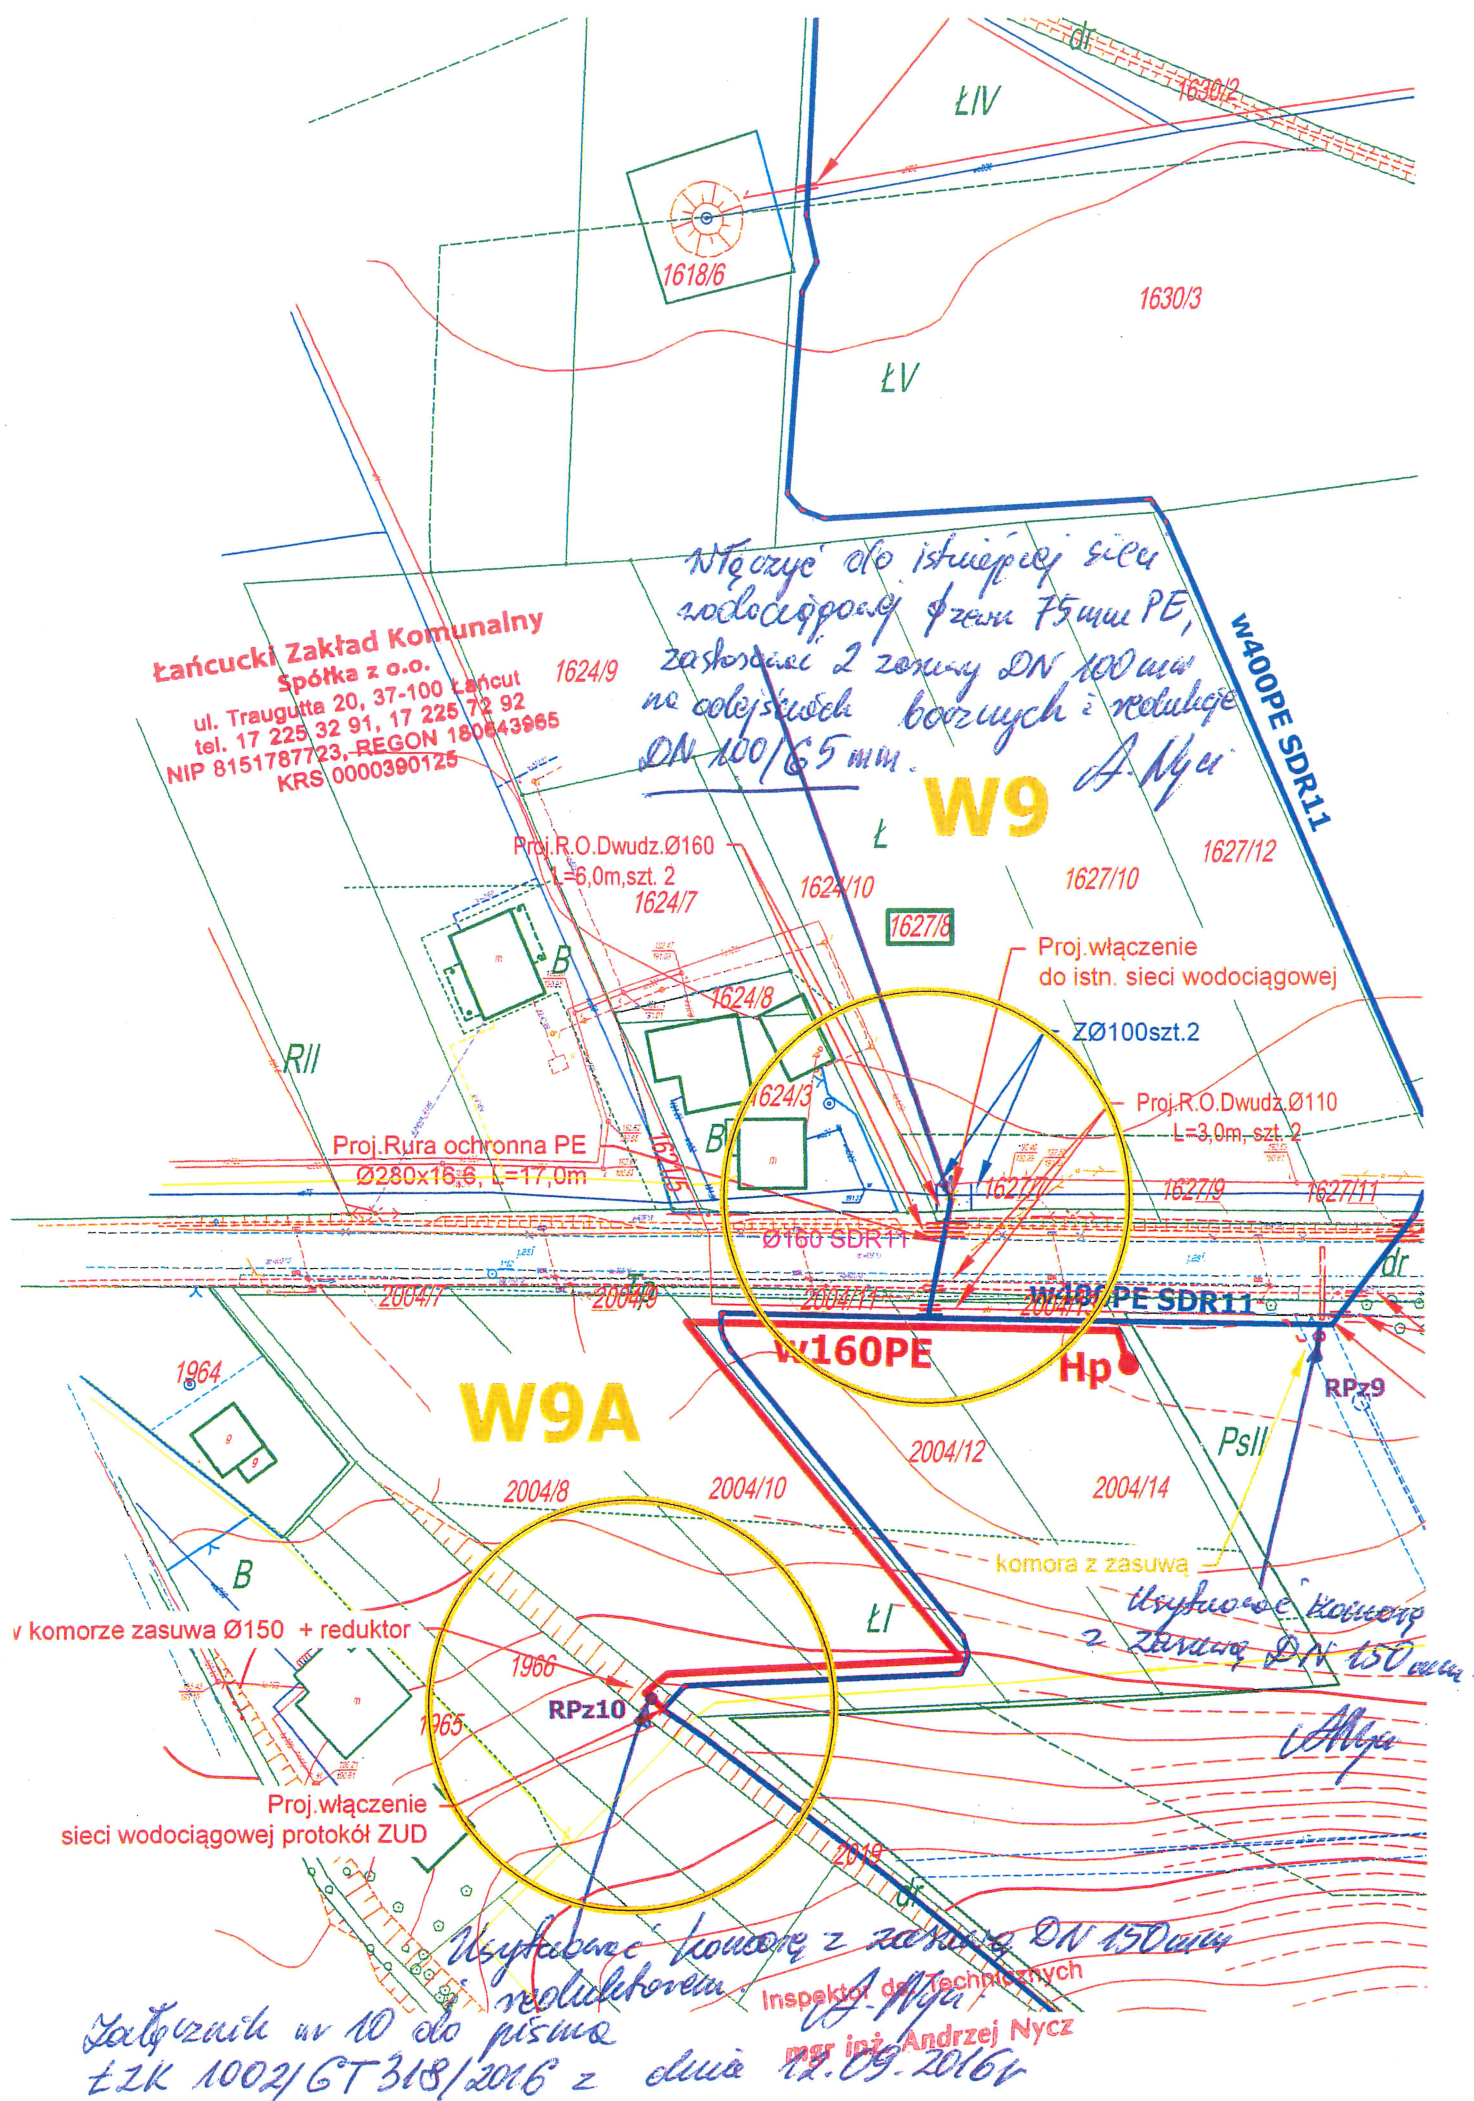 dr
1630/2
ŁIV
1618/6
1630/3
ŁV
Włączyć do istniejącej sieci
wodociągowej φzewn 75mm PE,
zastosować 2 zasuwy DN 100 mm
na odejściach bocznych i redukcję
DN 100/65 mm.
A. Nycz
w400PE SDR11
Łańcucki Zakład Komunalny
Spółka z o.o.
ul. Traugutta 20, 37-100 Łańcut
tel. 17 225 32 91, 17 225 72 92
NIP 8151787723, REGON 180643965
KRS 0000390125
1624/9
W9
Ł
1627/12
1627/10
Proj.R.O.Dwudz.Ø160
L=6,0m,szt. 2
1624/7
1624/10
1627/8
Proj.włączenie
do istn. sieci wodociągowej
B
m
1624/8
ZØ100szt.2
RII
1624/3
Proj.R.O.Dwudz.Ø110
L=3,0m, szt. 2
B
m
Proj.Rura ochronna PE
Ø280x16.6, L=17,0m
1621/5
1627/7
1627/9
1627/11
Ø160 SDR11
dr
2004/7
2004/9
2004/11
2004/13
w400PE SDR11
w160PE
Hp
RPz9
1964
g
g
W9A
2004/12
PsII
2004/8
2004/10
2004/14
komora z zasuwą
B
Usytuować komorę
z zasuwą DN 150 mm
ŁI
w komorze zasuwa Ø150 + reduktor
1966
m
RPz10
1965
A. Nycz
Proj.włączenie
sieci wodociągowej protokół ZUD
2019
dr
Usytuować komorę z zasuwą DN 150 mm
i reduktorem.
Inspektor ds. Technicznych
A. Nycz
mgr inż. Andrzej Nycz
Załącznik nr 10 do pisma
ŁZK 1002/GT318/2016 z dnia 12.09.2016r